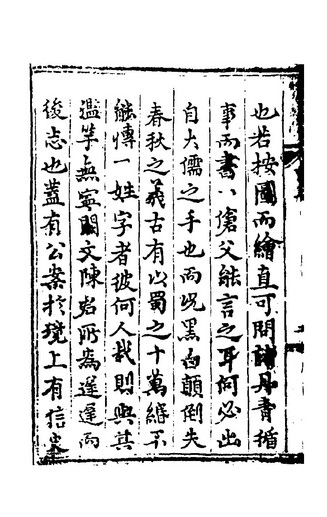 也若按圖而繪直可問諸丹書循
事而書八傖父能言之耳何必出
自大儒之手也而況黑白顛倒失
春秋之義古有以蜀之十萬縑不
能博一姓字者彼何人哉則與其
濫竽無寧闕文陳岩所為遲遲而
後志也蓋有公案於境上有信史